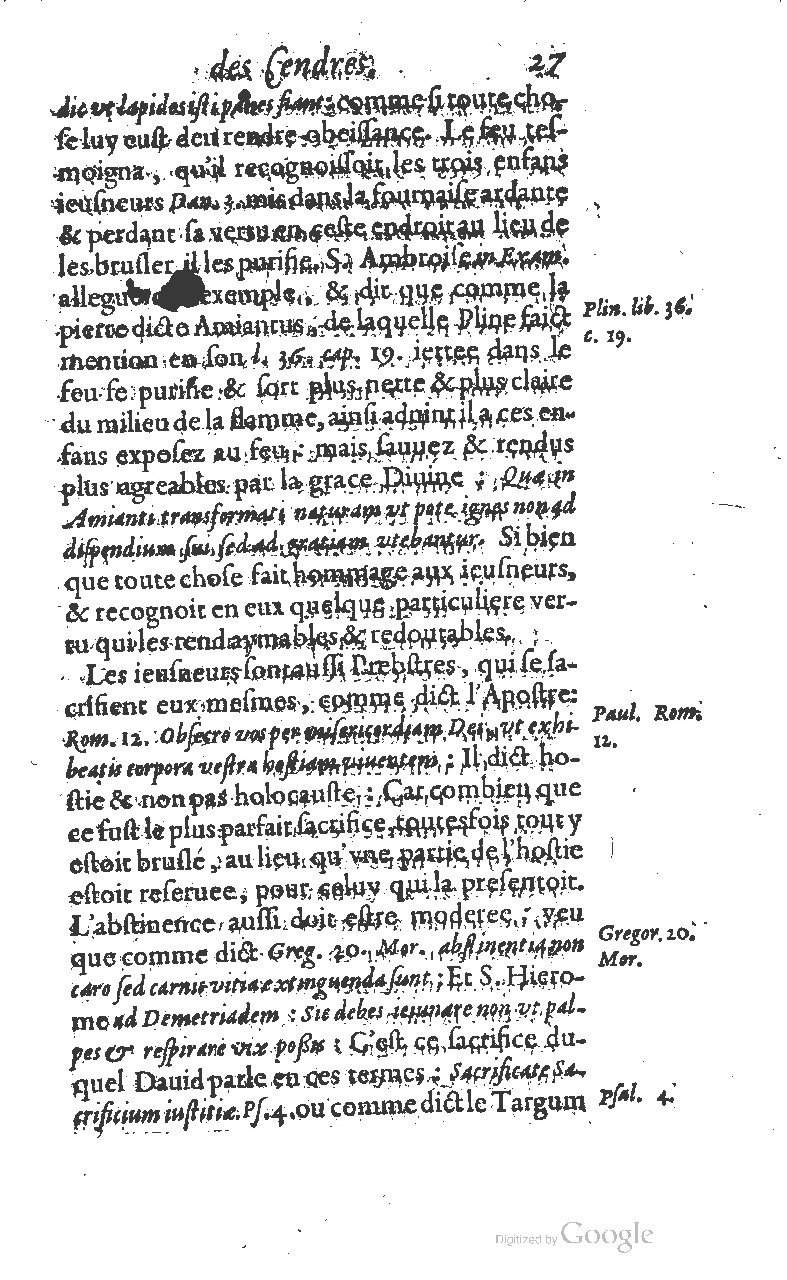 des Cendres. 27
dic vt lapides isti panes fiant: comme si toute cho-
se luy eust deu rendre obeissance. Le feu tes-
moigna, qu'il recognoissoit les trois enfans
ieusneurs Dan. 3. mis dans la fournaise ardante
& perdant sa vertu en ceste endroit au lieu de
les brusler il les purifie. S. Ambroise in Exam.
allegu exemple, & dit que comme la
pierre dicte Amiantus, de laquelle Pline faict
Plin. lib. 36.
c. 19.
mention en son l. 36. cap. 19. iettee dans le
feu se purifie & sort plus nette & plus claire
du milieu de la flamme, ainsi aduint il a ces en-
fans exposez au feu: mais sauuez & rendus
plus agreables par la grace Diuine; Quasi in
Amianti transformati naturam vt pote ignes non ad
dispendium sui sed ad gratiam vtebantur. Si bien
que toute chose fait hommage aux ieusneurs,
& recognoit en eux quelque particuliere ver-
tu qui les rend aymables & redoutables.
Les ieusneurs sont aussi Prebstres, qui se sa-
crifient eux mesmes, comme dict l'Apostre:
Rom. 12. Obsecro vos per misericordiam Dei, vt exhi-
Paul. Rom.
12.
beatis corpora vestra hostiam viuentem; Il dict ho-
stie & non pas holocauste: Car combien que
ce fust le plus parfait sacrifice, toutesfois tout y
estoit bruslé, au lieu qu'vne partie de l'hostie
estoit reseruee, pour celuy qui la presentoit.
L'abstinence aussi doit estre moderee; veu
que comme dict Greg. 20. Mor. abstinentia non
Gregor. 20.
Mor.
caro sed carnis vitia extinguenda sunt; Et S. Hiero-
me ad Demetriadem: Sic debes ieiunare non vt pal-
pes & respirare vix possis: C'est ce sacrifice du-
quel Dauid parle en ces termes; Sacrificate Sa-
crificium iustitiæ. Ps. 4. ou comme dict le Targum
Psal. 4.
Digitized by Google